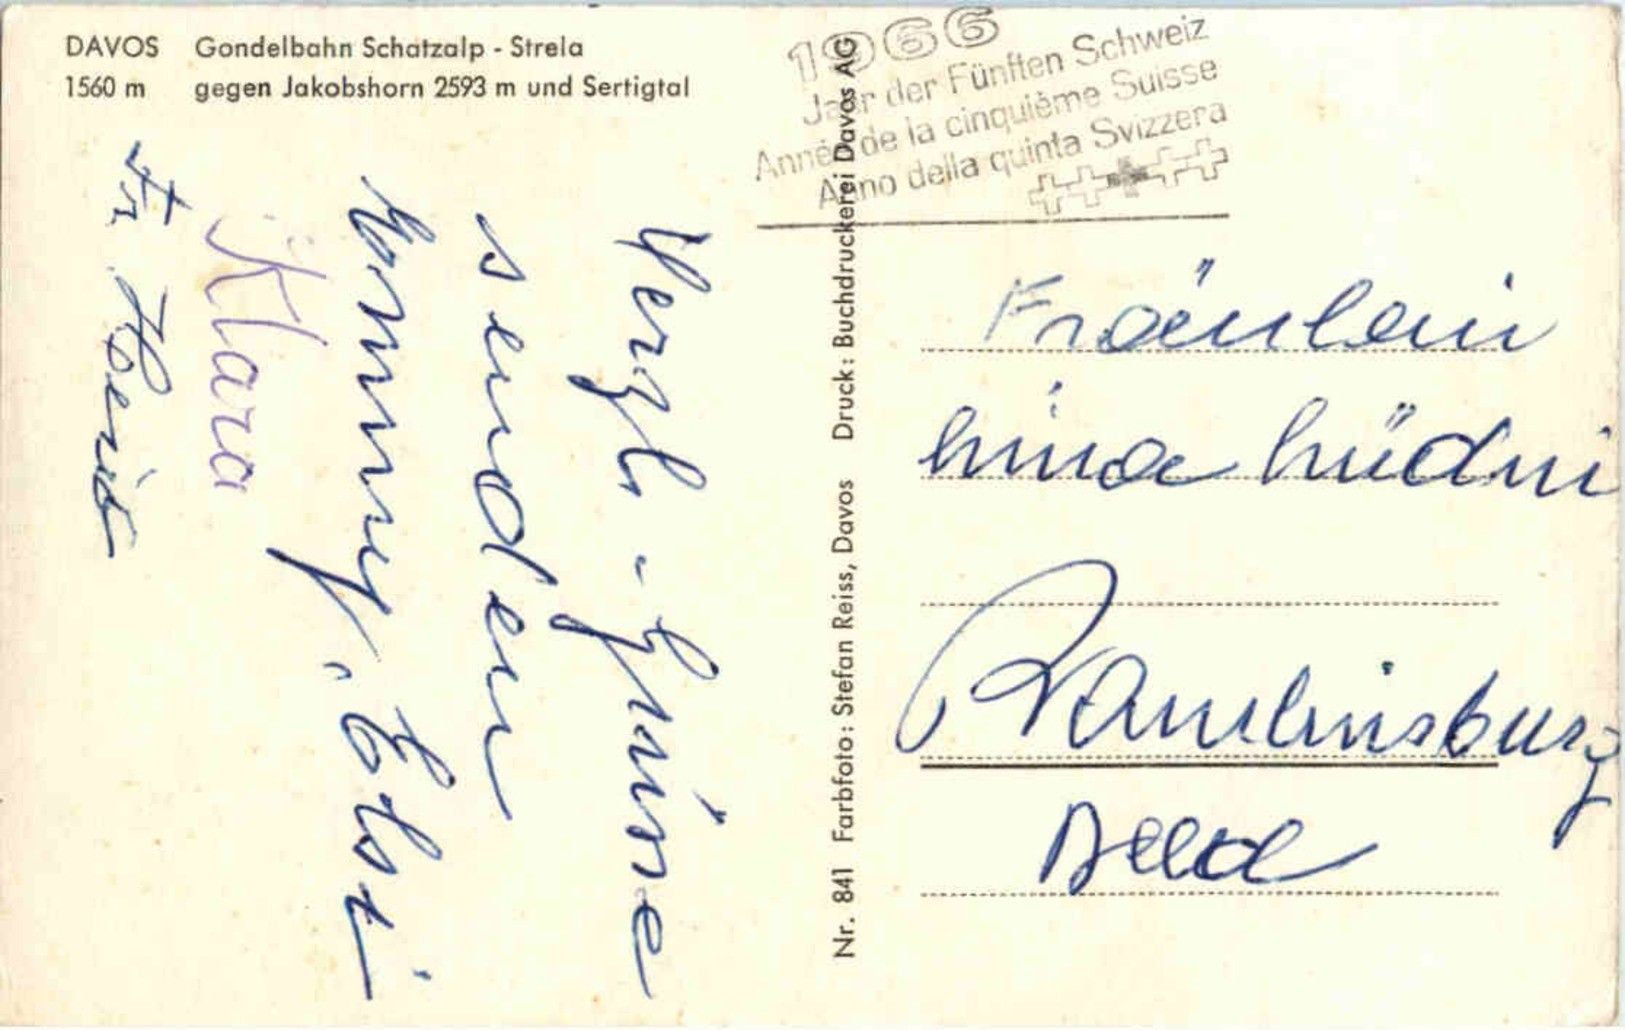 DAVOS Gondelbahn Schatzalp - Strela
1560 m gegen Jakobshorn 2593 m und Sertigtal
1966
Jahr der Fünften Schweiz
Année de la cinquième Suisse
Anno della quinta Svizzera
Herzl. Grüsse
senden
Elsi
Klara
Fr.
Nr. 841 Farbfoto: Stefan Reiss, Davos Druck: Buchdruckerei Davos AG
Fräulein
Lina Lüdni
Ramlinsburg